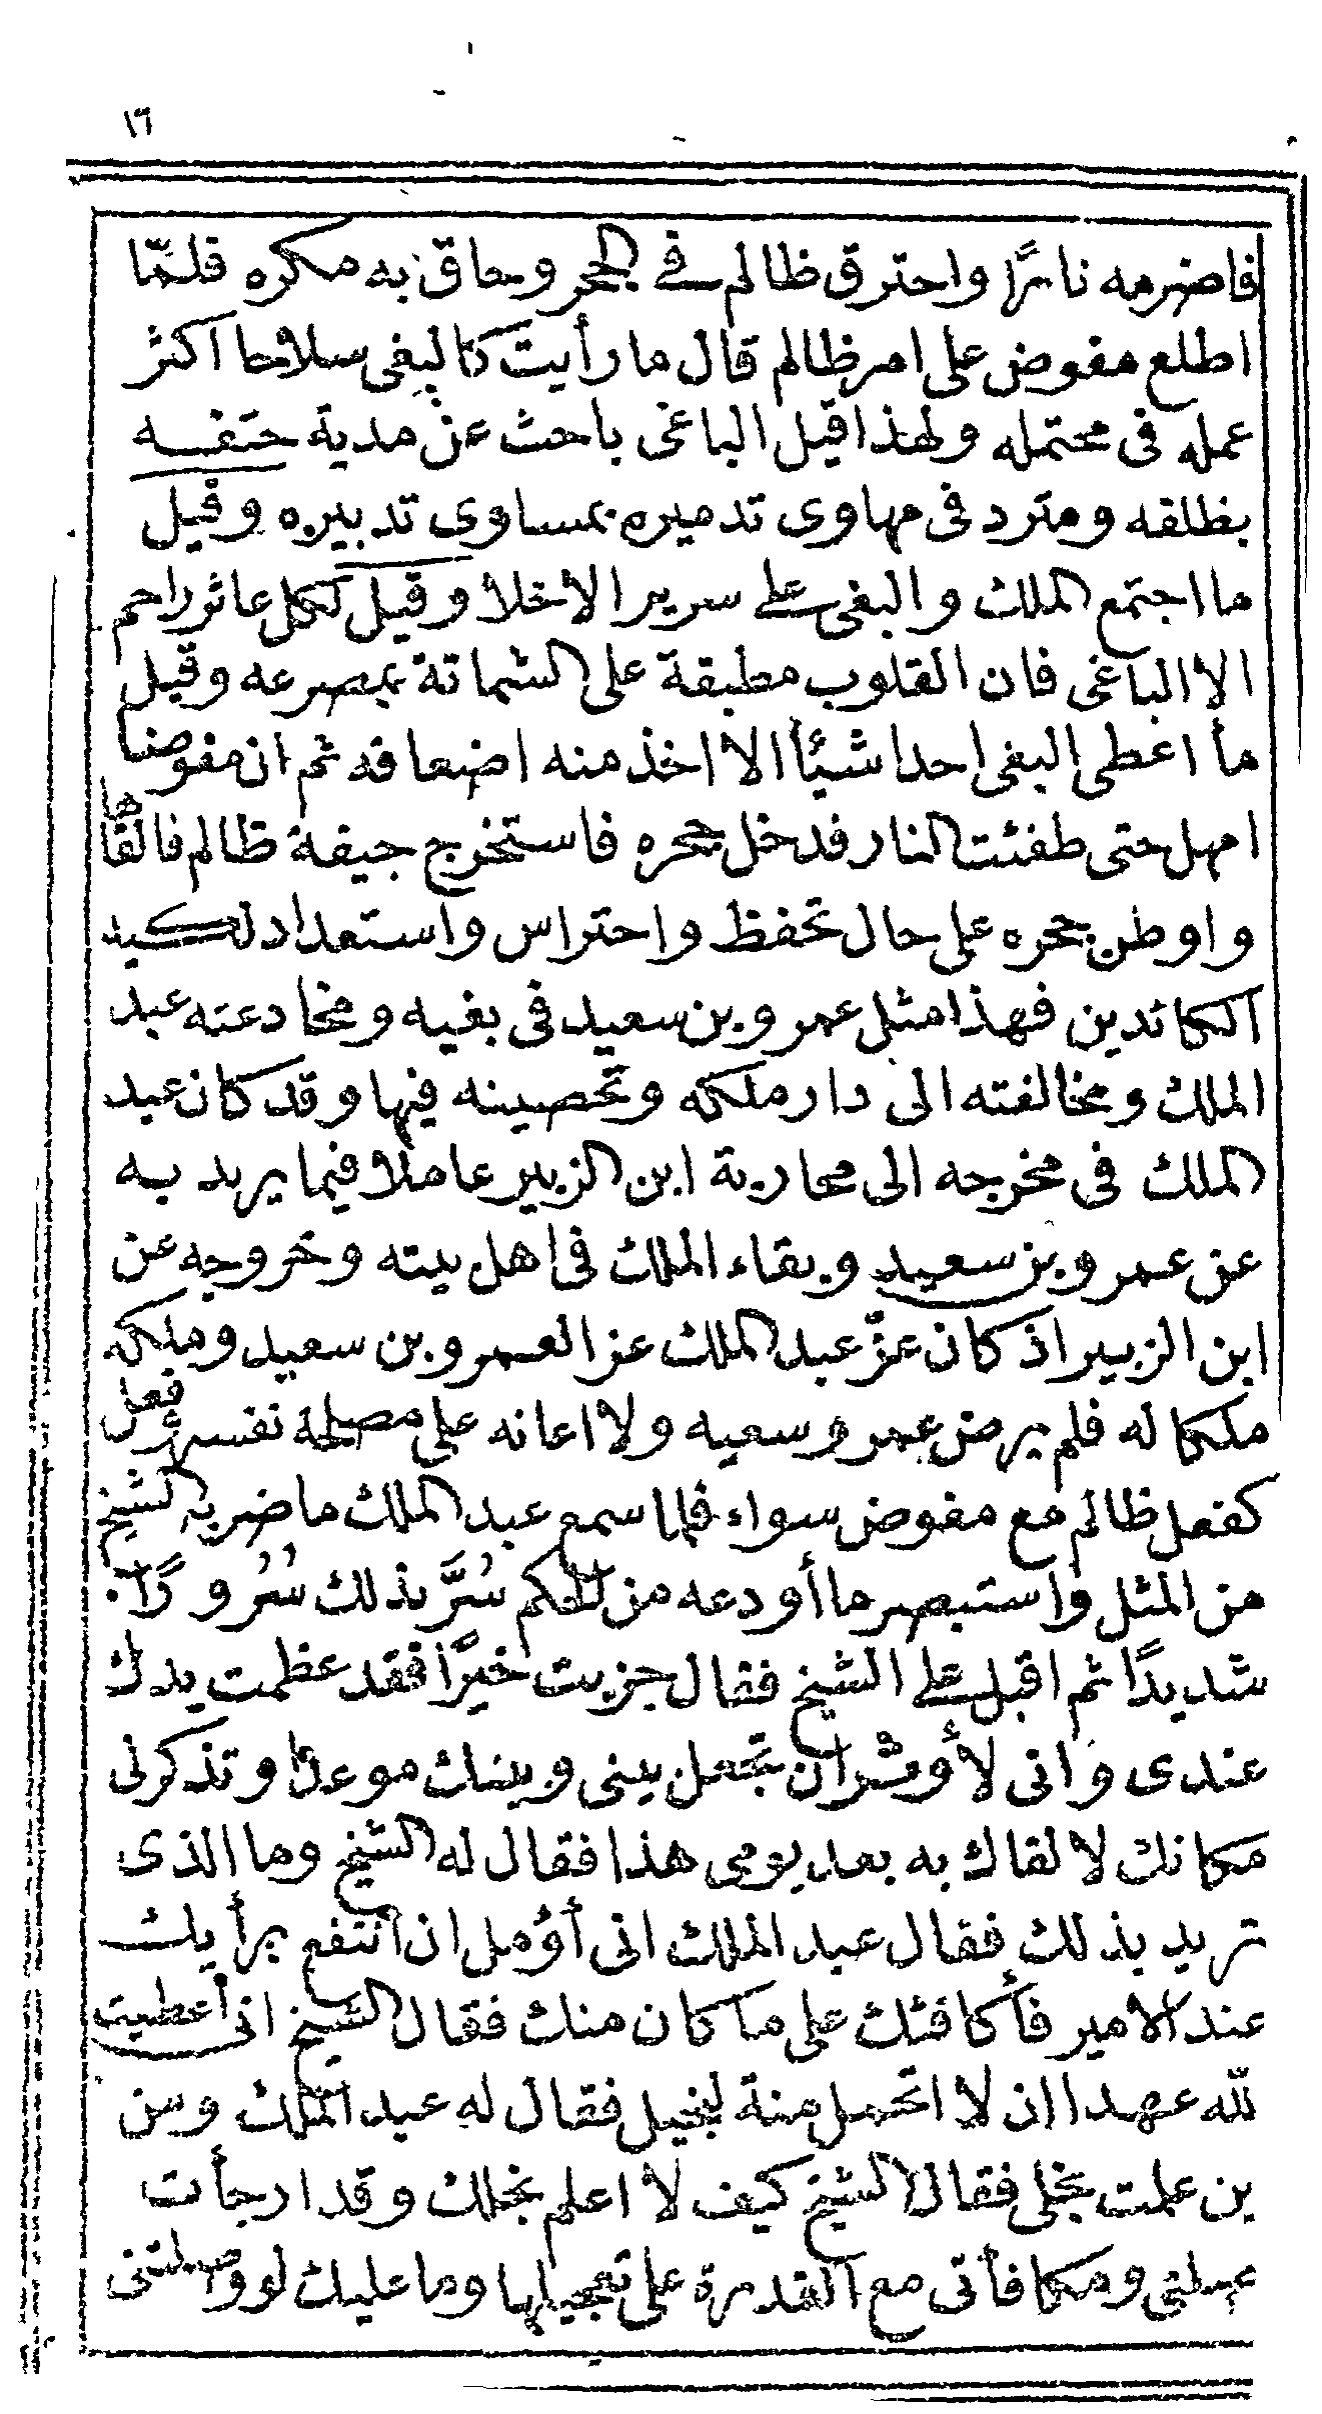 ١٦
فاضرمه نارًا واحترق ظالم في الجحر وحاق به مكره فلمّا
اطلع مفوض على امر ظالم قال ما رأيت كالبغى سلاحا اكثر
عمله فى محتمله ولهذا قيل الباغى باحث عن مدية حتفه
بظلفه ومترد فى مهاوى تدميره بمساوى تدبيره وقيل
ما اجتمع الملك والبغى على سرير الا خلا وقيل لكل عاثر راحم
الا الباغى فان القلوب مطبقة على الشماتة بمصرعه وقيل
ما اعطى البغى احدا شيأ الا اخذ منه اضعافه ثم ان مفوضا
امهل حتى طفئت النار فدخل جحره فاستخرج جيفة ظالم فالقاها
واوطن جحره على حال تحفظ واحتراس واستعداد لكيد
الكائدين فهذا مثل عمرو بن سعيد فى بغيه ومخادعته عبد
الملك ومخالفته الى دار ملكه وتحصينه فيها وقد كان عبد
الملك فى مخرجه الى محاربة ابن الزبير عاملا فيما يريد به
عن عمرو بن سعيد وبقاء الملك فى اهل بيته وخروجه عن
ابن الزبير اذ كان عزّ عبد الملك عزا لعمرو بن سعيد وملكه
ملكا له فلم يرض عمرو سعيه ولا اعانه على مصلحة نفسه فعل
كفعل ظالم مع مفوض سواء فلما سمع عبد الملك ما ضربه الشيخ
من المثل واستبصر ما أودعه من الحكم سُرَّ بذلك سُرُورًا
شديدًا ثم اقبل على الشيخ فقال جزيت خيرًا فقد عظمت يدك
عندى وانى لأوثر ان تجعل بينى وبينك موعدا وتذكر لى
مكانك لالقاك به بعد يومى هذا فقال له الشيخ وما الذى
تريد بذلك فقال عبد الملك انى أؤمل ان انتفع برأيك
عند الامير فأكافئك على ما كان منك فقال الشيخ انى أعطيت
لله عهدا ان لا اتحمل منة لبخيل فقال له عبد الملك ومن
ين علمت بخلى فقال الشيخ كيف لا اعلم بخلك وقد ارجأت
صلتى ومكافأتى مع القدرة على تعجيلها وما عليك لو وصلتنى